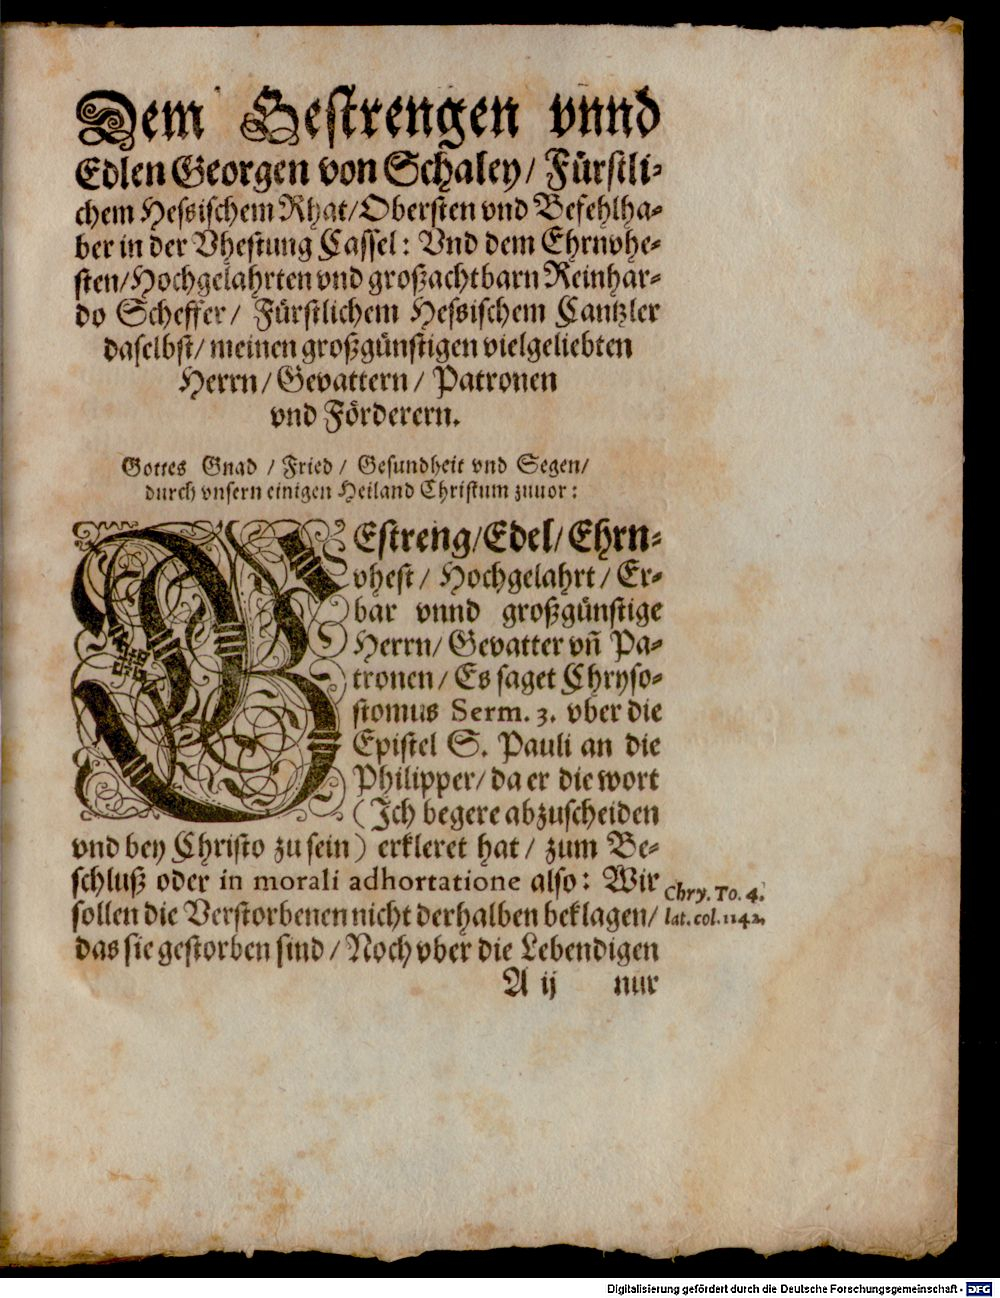 Dem Gestrengen vnnd
Edlen Georgen von Schaley/ Fürstli-
chem Hessischem Rhat/Obersten vnd Befehlha-
ber in der Vhestung Cassel: Vnd dem Ehrnvhe-
sten/Hochgelahrten vnd großachtbarn Reinhar-
do Scheffer/ Fürstlichem Hessischem Cantzler
daselbst/ meinen großgünstigen vielgeliebten
Herrn/ Gevattern/ Patronen
vnd Förderern.
Gottes Gnad / Fried/ Gesundheit vnd Segen/
durch vnsern einigen Heiland Christum zuuor:
GEstreng/Edel/Ehrn-
vhest/ Hochgelahrt/ Er-
bar vnnd großgünstige
Herrn/ Gevatter vñ Pa-
tronen/ Es saget Chryso-
stomus Serm. 3. vber die
Epistel S. Pauli an die
Philipper/ da er die wort
(Ich begere abzuscheiden
vnd bey Christo zu sein) erkleret hat/ zum Be-
schluß oder in morali adhortatione also: Wir
sollen die Verstorbenen nicht derhalben beklagen/
das sie gestorben sind/ Noch vber die Lebendigen
Chry. To. 4.
lat. col. 1142.
A ij nur
Digitalisierung gefördert durch die Deutsche Forschungsgemeinschaft - DFG